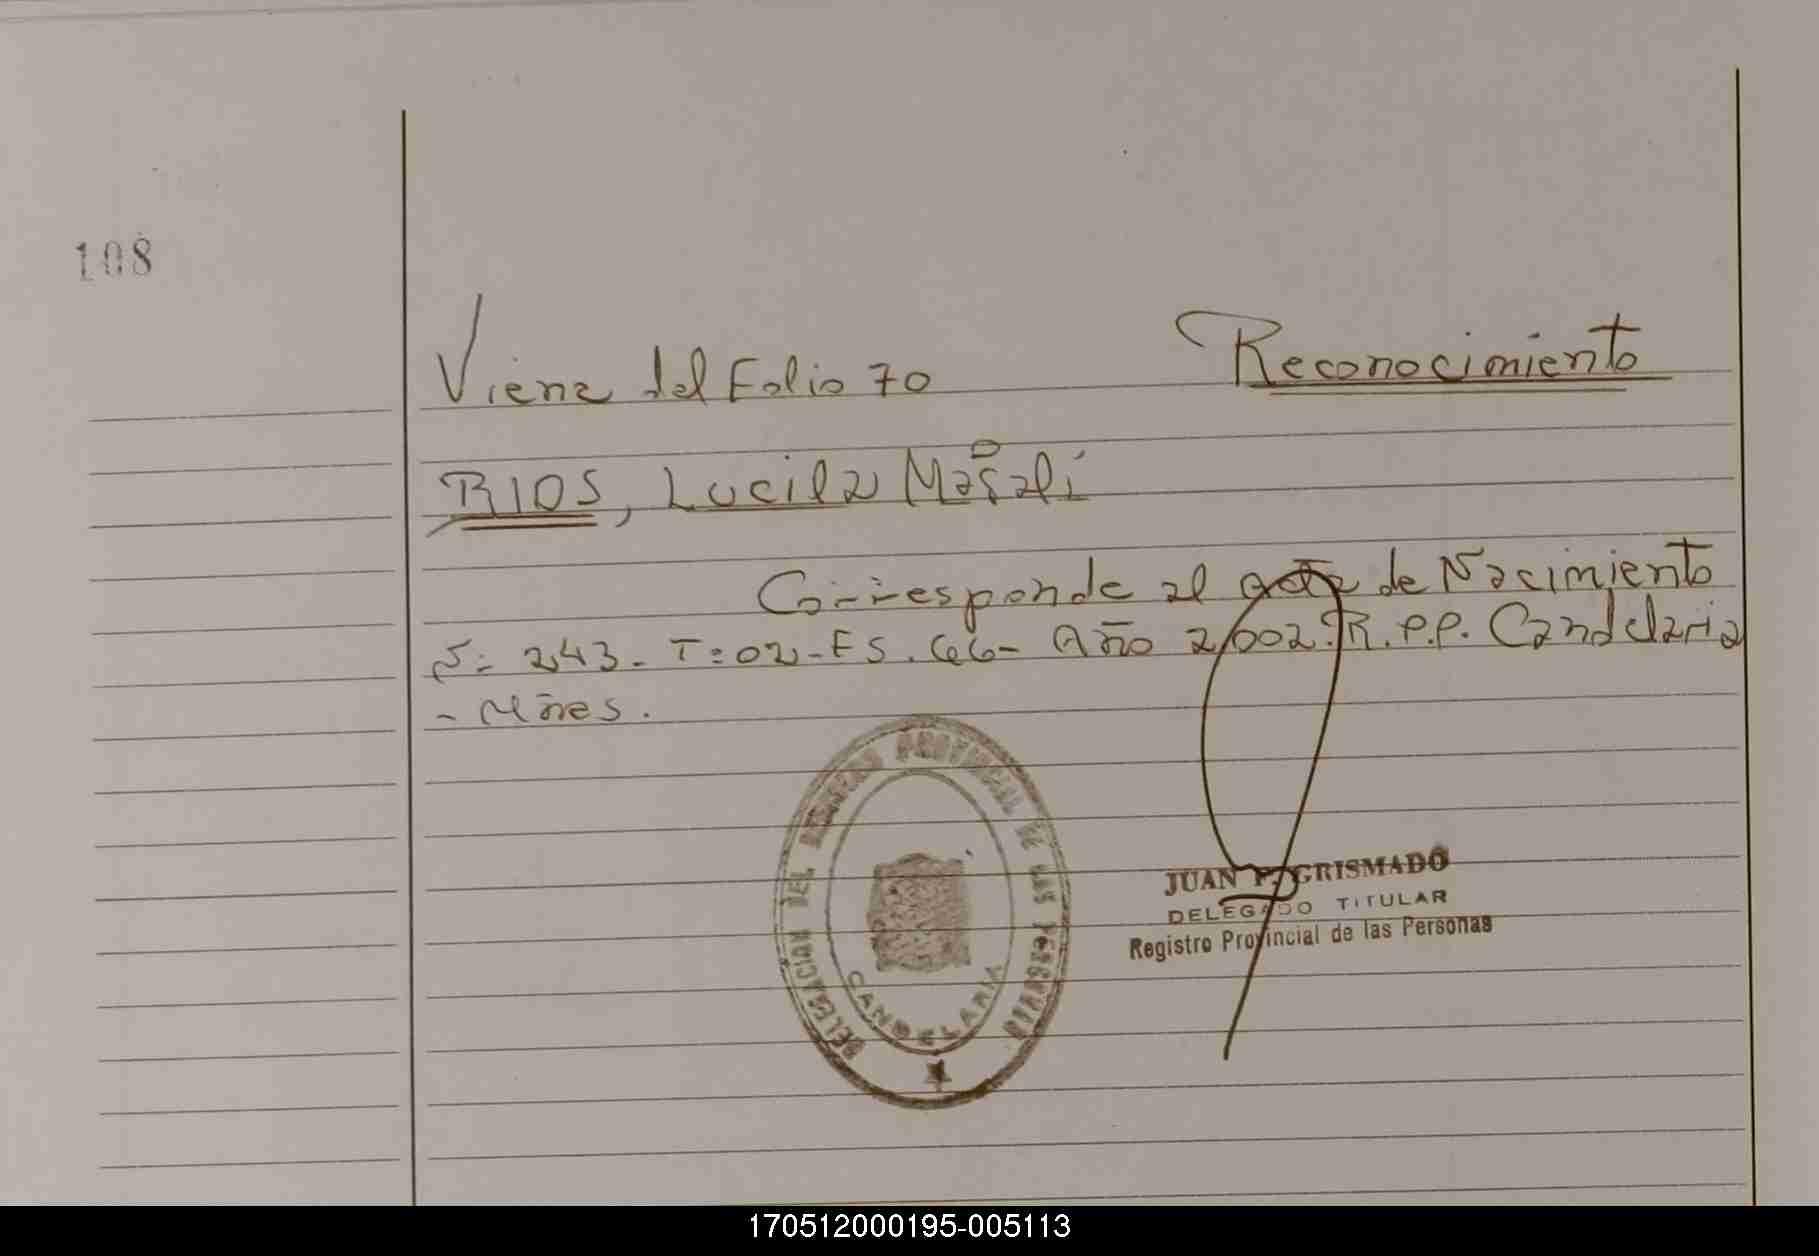 108
Viene del Folio 70 Reconocimiento
RIOS, Lucila Magali
Corresponde al acta de Nacimiento
Nº 243 - T: 02 - Fs. 66 - Año 2,002. R.P.P. Candelaria
- Mnes.
DELEGACION DEL REGISTRO PROVINCIAL DE LAS PERSONAS
CANDELARIA
JUAN P. GRISMADÓ
DELEGADO TITULAR
Registro Provincial de las Personas
170512000195-005113